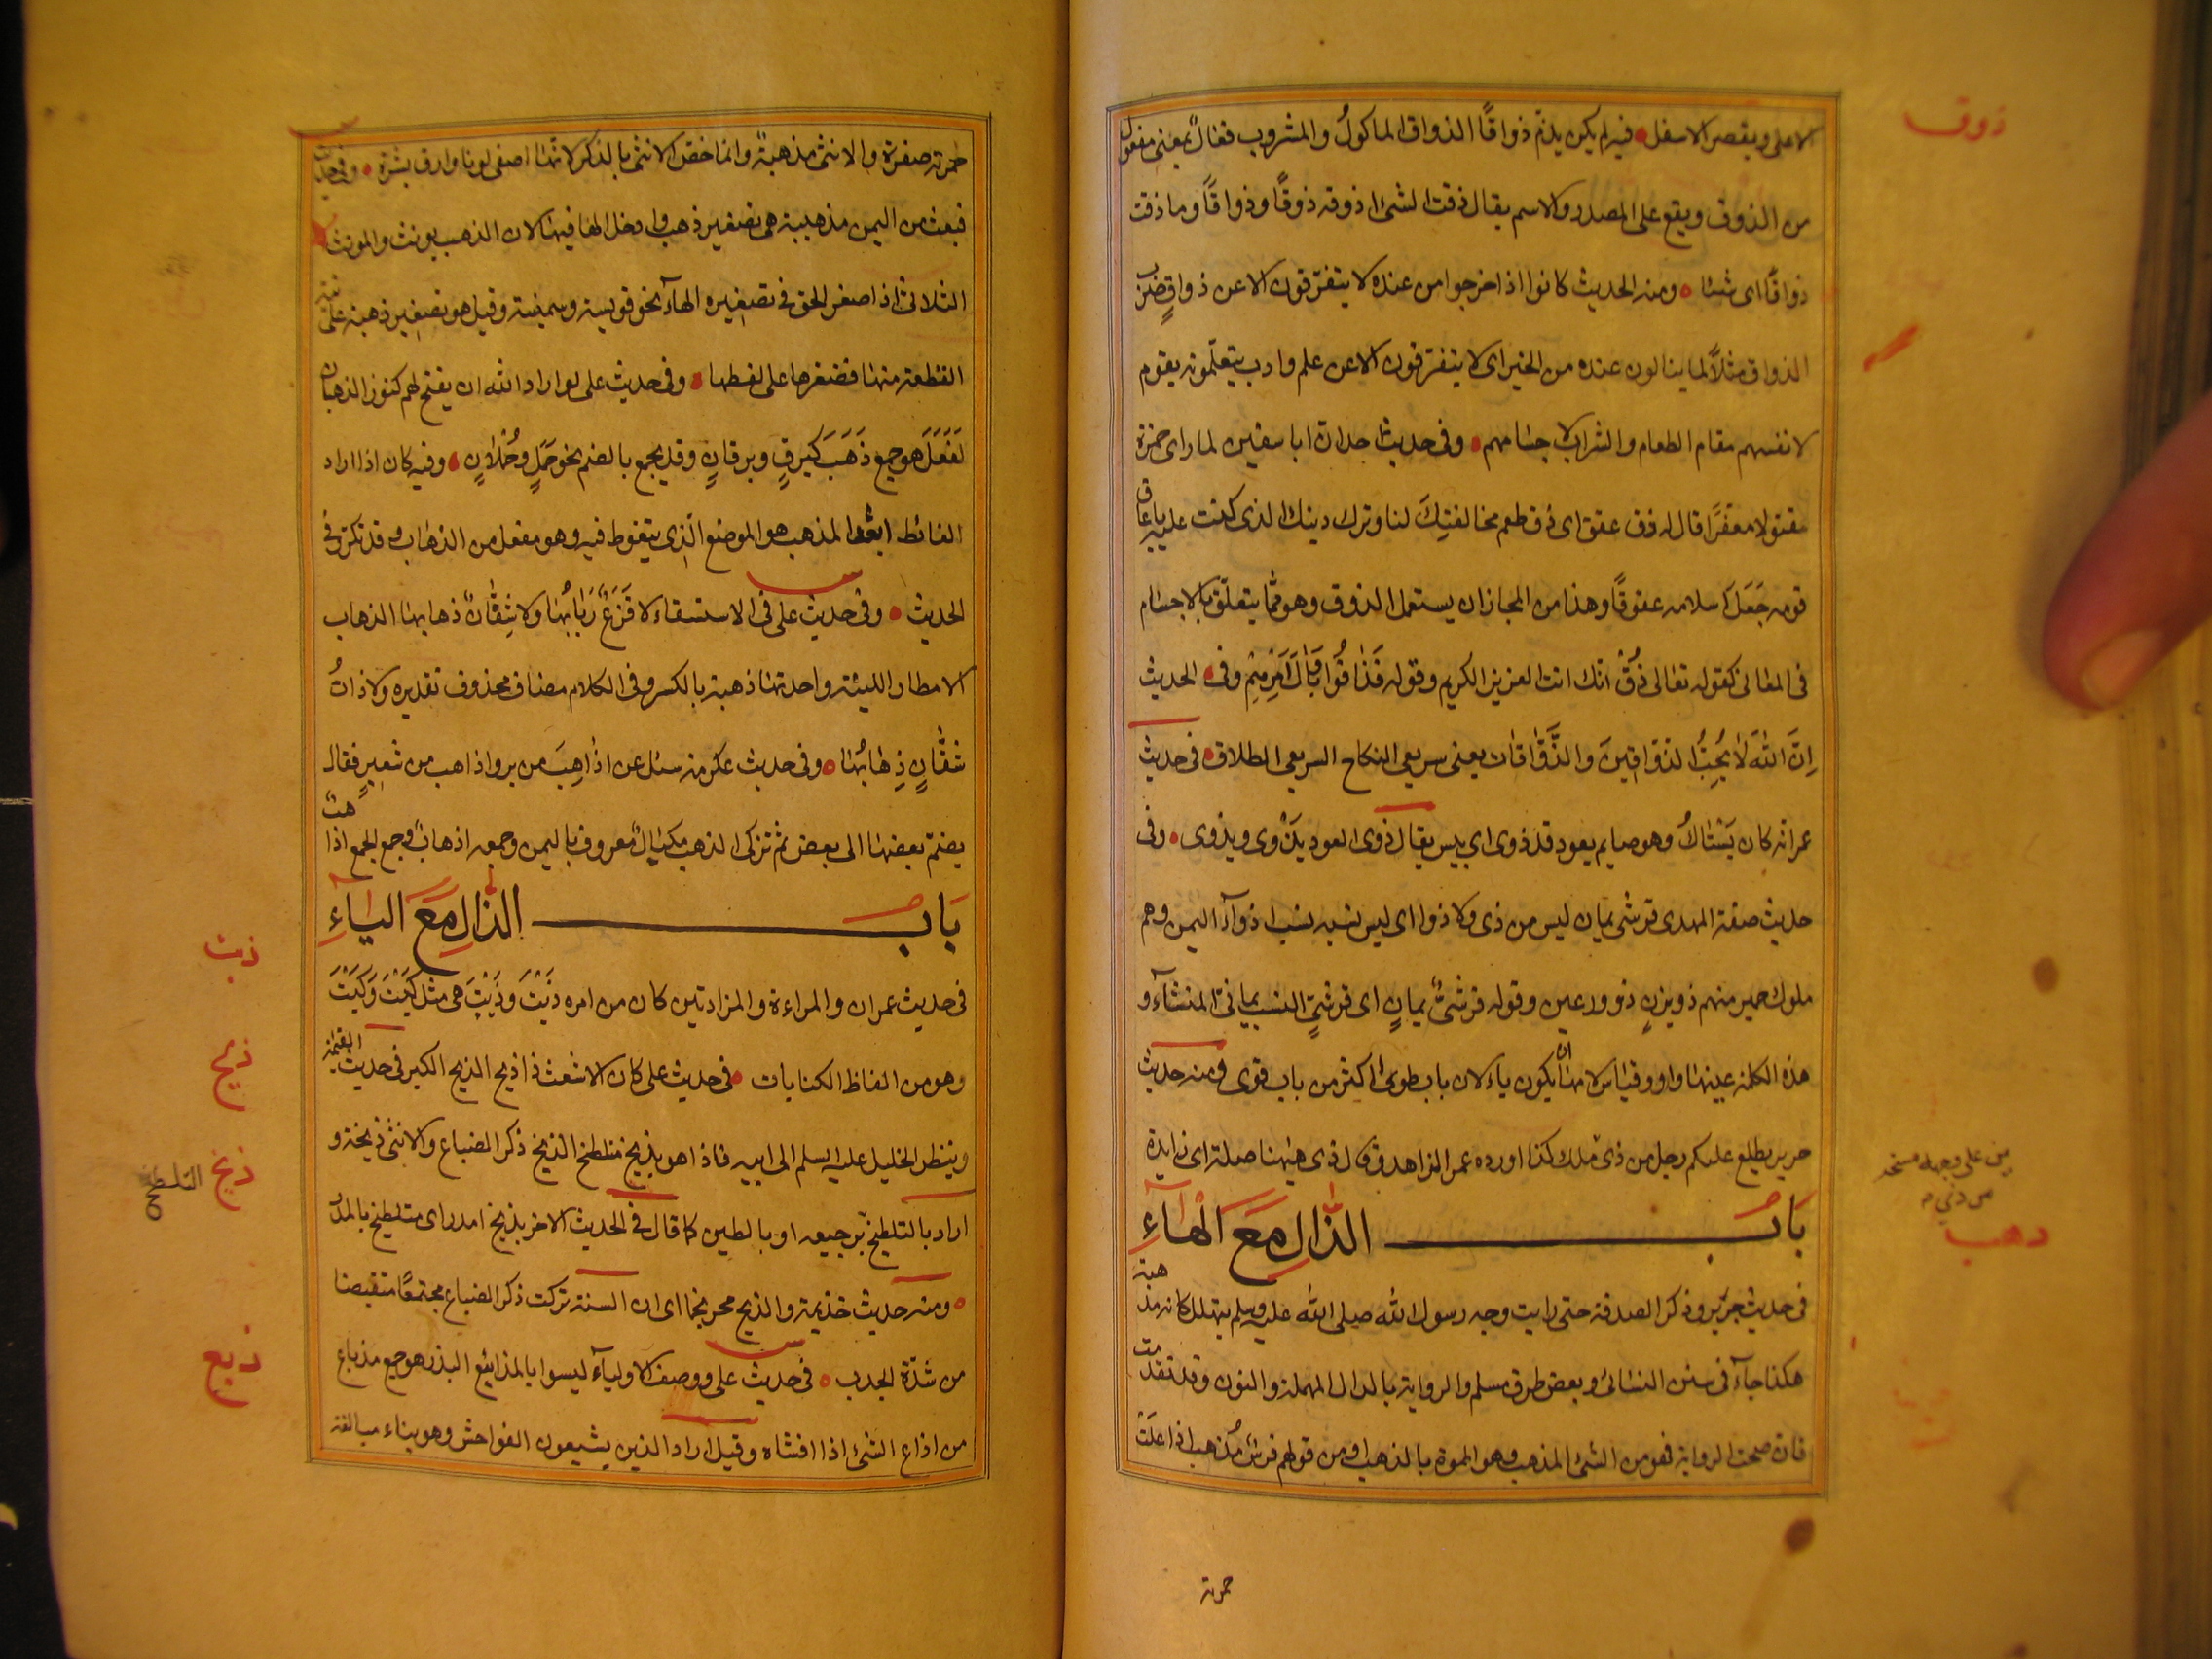 ذوق
الاعلى ويقصر الاسفل فيه لم يكن يذمّ ذواقًا الذواق الماكولُ والمشروب فعالٌ بمعنى مفعول
من الذوق ويقع على المصدر والاسم يقال ذقت الشئ اذوقه ذوقًا وذواقًا وما ذقت
ذواقًا اى شيئا ومنه الحديث كانوا اذا خرجوا من عنده لا يتفرّقون الا عن ذواقٍ ضرب
الذواق مثلاً لما ينالون عنده من الخير اى لا يتفرّقون الا عن علم وادب يتعلّمونه يقوم
لانفسهم مقام الطعام والشراب لاجسامهم وفى حديث احد ان ابا سفين لما راى حمزة
مقتولا معفّرًا قال له ذق عقق اى ذق طعم مخالفتِكَ لنا وترك دينك الذى كنت عليه يا عاق
قومه جَعَلَ اسلامه عقوقًا وهذا من المجاز ان يستعمل الذوق وهو ممّا يتعلّق بالاجسام
فى المعانى كقوله تعالى ذُقْ انّك انت العزيز الكريم وقوله فَذَاقُوا وَبَالَ اَمْرِهِمْ وفى الحديث
اِنَّ اللّٰهَ لَا يُحِبُّ الذوّاقِينَ وَالذَّوّاقَات يعنى سريعى النكاح السريعى الطلاق فى حديث
عمر انّه كان يَسْتَاكُ وهو صايم بعود قد ذوى اى يبس يقال ذوى العود يَذْوى ويذوى وفى
حديث صفة المهدى قرشى يمان ليس من ذى ولا ذوا اى ليس نسبه نسب اذوآء اليمن وهم
ملوك حمير منهم ذو يزن ذو ورعين وقوله قرشىٌّ يمانٍ اى قرشىّ النسب يمانىّ المنشآء و
هذه الكلمة عينها واو وقياس لامها ان يكون ياء لان باب طوى اكثر من باب قوى ومنه حديث
جرير يطلع عليكم رجل من ذى ملك كذا اورده عمر الزاهد وقال ذى هيهنا صلة اى زايدة
يمن على وجهه مسحة
من ذى م
باب الذّال مَعَ الهاءِ
ذهب
فى حديث جرير وذكر الصدقة حتى رايت وجه رسول الله صلى الله عليه وسلم يتهلل كانه مذهبة
هكذا جآء فى سنن النسائى وبعض طرق مسلم والرواية بالدال المهملة والنون وقد تقدمت
فان صحت الرواية فهو من الشئ المذهب وهو المموة بالذهب او من قولهم فرسٌ مُذهب اذا علَتْ
حمرته
حمرته صفرة والانثى مذهبة وانما خصّ الانثى بالذكر لانها اصفى لونا وارق بشرة وفى حديث
فبعث من اليمن مذهيبة هى تصغير ذهب وادخل الها فيها لان الذهب يونث والمونث
الثلاثى اذا صغر الحق فى تصغيره الهآء نحو قويسة وشميسة وقيل هو تصغير ذهبة على نية
القطعة منها فصغرها على لفظها وفى حديث على لو اراد الله ان يفتح لهم كنوز الذهبان
لَفَعَلَ هو جمع ذَهَبَ كبرقٍ وبرقانٍ وقد يجمع بالضم نحو حَمَلٍ وحُمْلانٍ وفيه كان اذا اراد
الغائط ابعد المذهب هو الموضع الّذى يتغوط فيه وهو مفعل من الذهاب وقد تكرّر فى
الحديث وفى حديث على فى الاستسقاء لا قَزَعٌ رَبَابُها ولا شِفّانٌ ذهابها الذهاب
الامطار اللينة واحدتها ذهبة بالكسر وفى الكلام مضاف محذوف تقديره ولا ذاتُ
شفّانٍ ذِهابُها وفى حديث عكرمة سئل عن اذاهِبَ من بر واذاهب من شعيرٍ فقال
يضمّ بعضها الى بعض ثم تزكى الذهب مكيالٌ معروف باليمن وجمعه اذهابٌ وجمع الجمع اذاهب
باب الذّال مَعَ الياءِ
ذيت
فى حديث عمران والمراءة والمزادتين كان من امره ذَيْتَ وذَيْتَ هى مثل كَيْتَ وَكَيْتَ
ذيح
وهو من الفاظ الكنايات فى حديث على كان الاشعث ذا ذيح الذيح الكبر فى حديث القيمة
ذيخ
وينظر الخليل عليه السلم الى ابيه فاذا هو بذيخ متلطخ الذيخ ذكر الضباع والانثى ذيخة و
التلطخ
اراد بالتلطخ برجيعه او بالطين كما قال فى الحديث الاخر بذيخ امدر اى متلطخ بالمدر
ومنه حديث خذيمة والذيخ محرنجما اى ان السنة تركت ذكر الضباع مجتمعًا متقبضا
ذيع
من شدّة الجدب فى حديث على ووصف الاوليآء ليسوا بالمذاييع البذر هو جمع مذياع
من اذاع الشئ اذا افشاه وقيل اراد الذين يشيعون الفواحش وهو بناء مبالغة